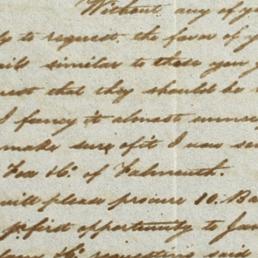 Without any of y
to request the favor of y
similar to those you
that they should be
I fancy to almost unnec
make sure of it I now se
Fox &Co. of Falmouth.
will please procure 10. Ba
p first opportunity to Ja
&Co. requesting said